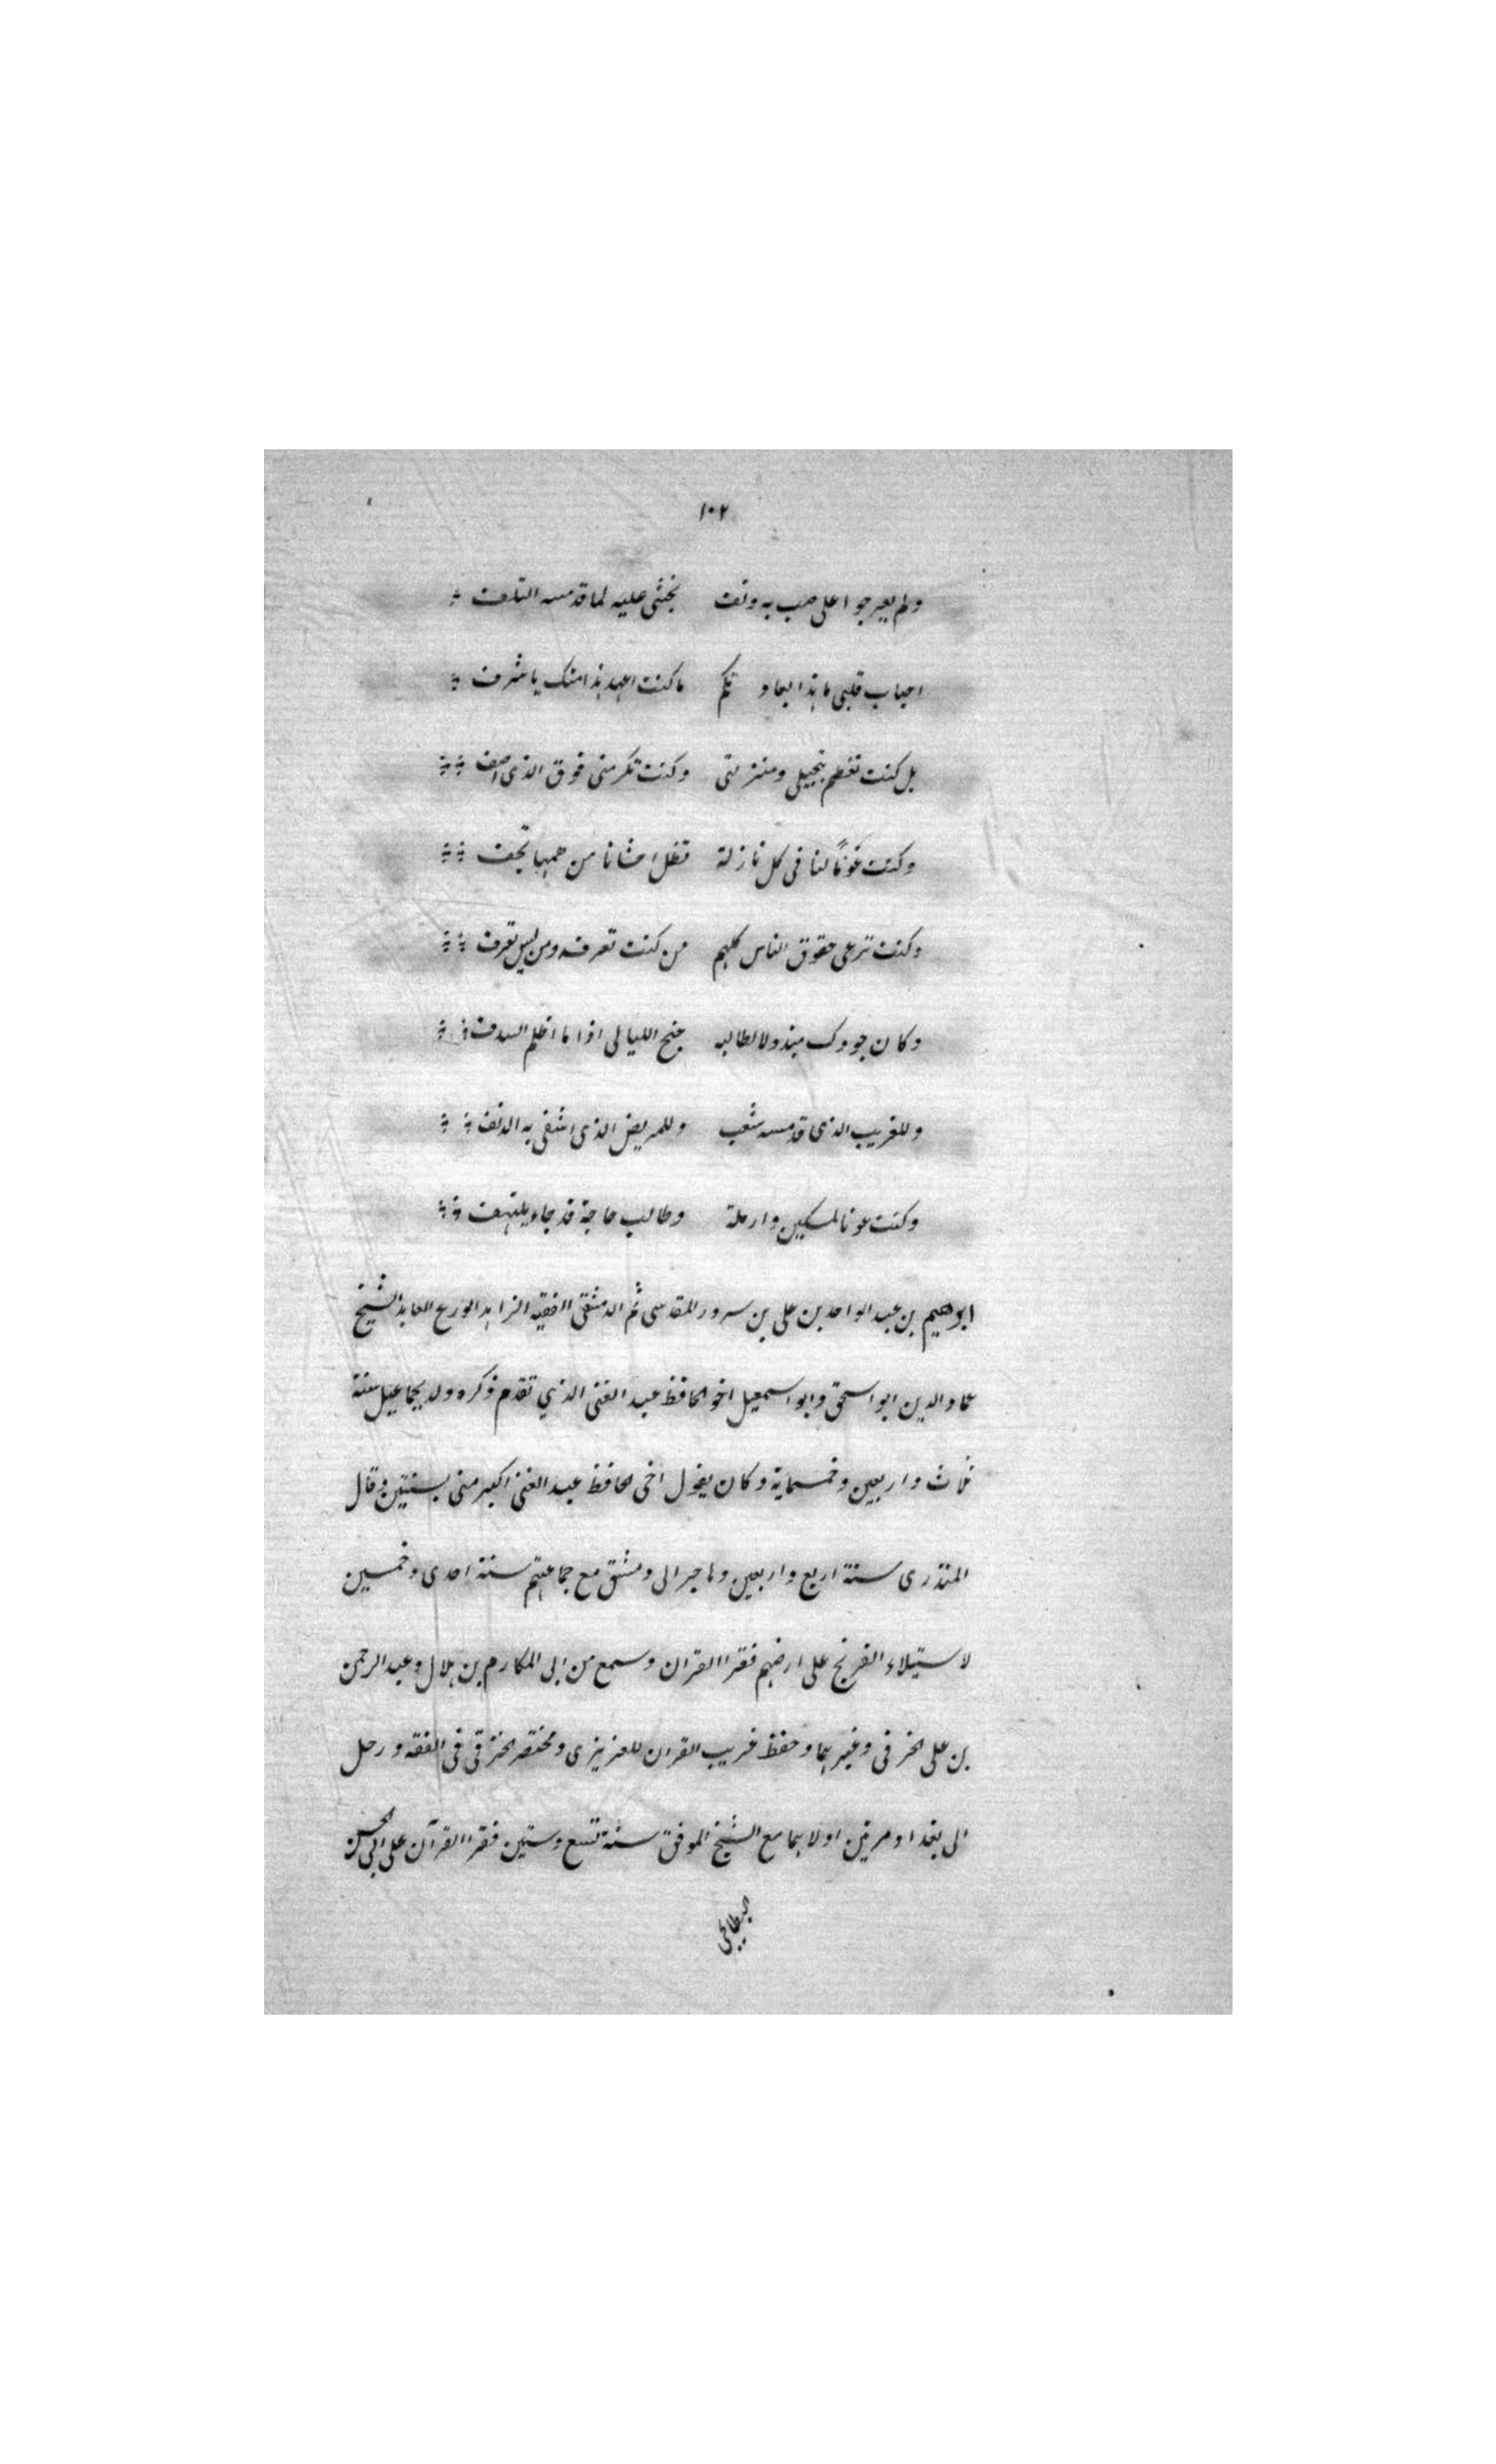 ١٠٢
ولم يعرجوا على صب به دنف يخشى عليه لما قد مسه التلف
احباب قلبى ما هذا بعادتكم ما كنت اعهد هذا منك يا شرف
بل كنت تعظم تبجيلى ومنزلتى وكنت تكرمنى فوق الذى اصف
وكنت عونًا لنا فى كل نازلة تظل احشانا من همها تجف
وكنت ترعى حقوق الناس كلهم من كنت تعرفه ومن ليس تعرف
وكان جودك مبذولا لطالبه جنح الليالى اذا ما اظلم السدف
وللغريب الذى قد مسه شغب وللمريض الذى اشفى به الدنف
وكنت عونا لمسكين وارملة وطالب حاجة قد جاء يلتهف
ابرهيم بن عبد الواحد بن على بن سرور المقدسى ثم الدمشقى الفقيه الزاهد الورع العابد الشيخ
عماد الدين ابو اسحق وابو اسمعيل اخو الحافظ عبد الغنى الذي تقدم ذكره ولد بجماعيل سنة
ثلاث واربعين وخمسماية وكان يقول اخى الحافظ عبد الغنى اكبر منى بسنتين وقال
المنذرى سنة اربع واربعين وهاجر الى دمشق مع جماعتهم سنة احدى وخمسين
لاستيلاء الفرنج على ارضهم فقرا القران وسمع من ابى المكارم بن هلال وعبد الرحمن
بن على الخرقى وغيرهما وحفظ غريب القران للعزيزى ومختصر الخرقى فى الفقه ورحل
الى بغداد مرتين اولاهما مع الشيخ الموفق سنة تسع وستين فقرا القرآن على ابى الحسن
البطايحى